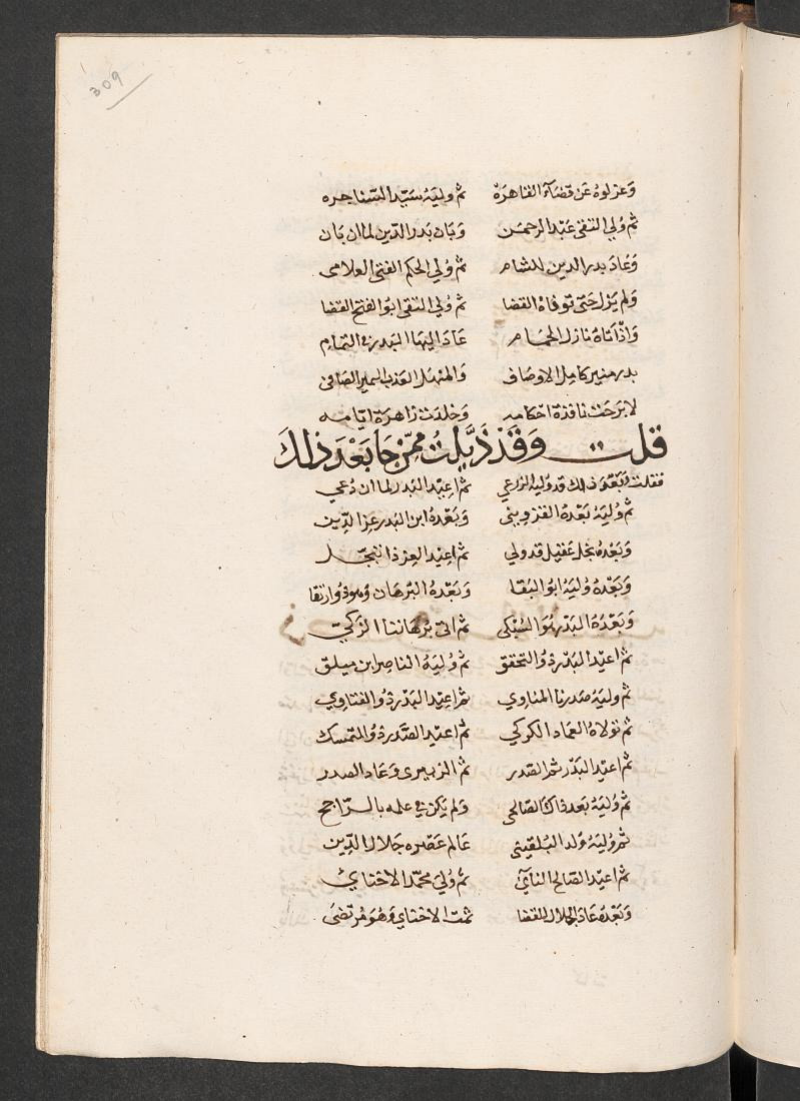 309
وعزلوه عن قضاة القاهرة ثم وليه سيد السناجره
ثم ولي التقى عبد الرحمن وبان بدر الدين لما ان بان
وعاد بدر الدين للشام ثم ولي الحكم الفتى العلامى
ولم يزل حتى توفاه القضا ثم ولي التقى ابو الفتح القضا
واذ اتاه نازل الحمام عاد اليها البدر في التمام
بدر منير كامل الاوصاف والمنهل العذب النمير الصافى
لا برحت نافذة احكامه وخلدت زاهرة ايامه
قلت وقد ذيلت ممن جا بعد ذلك
فقلت وبعد ذلك قد وليه الزرعي ثم اعيد البدر لما ان دعي
ثم وليه بعده القزويني وبعده ابن البدر عز الدين
وبعده نجل عقيل قد ولي ثم اعيد العز ذا
وبعده وليه ابو البقا وبعده البرهان وهو ذو ارتقا
وبعده البدر هو السبكى ثم اتى برهاننا الزكي
ثم اعيد البدر ذو التحقق ثم وليه الناصر ابن ميلق
ثم وليه صدرنا المناوي ثم اعيد البدر ذو الفتاوي
ثم تولاه العماد الكركي ثم اعيد الصدر ذو التمسك
ثم اعيد البدر ثم الصدر ثم الزبيرى وعاد الصدر
ثم وليه بعد ذاك الصالحى ولم يكن في علمه بالراجح
ثم وليه ولد البلقيني عالم عصره جلال الدين
ثم اعيد الصالح النائي ثم ولي محمد الاخنائي
وبعده عاد الجلال للقضا ثمت الاخناي وهو مرتضى